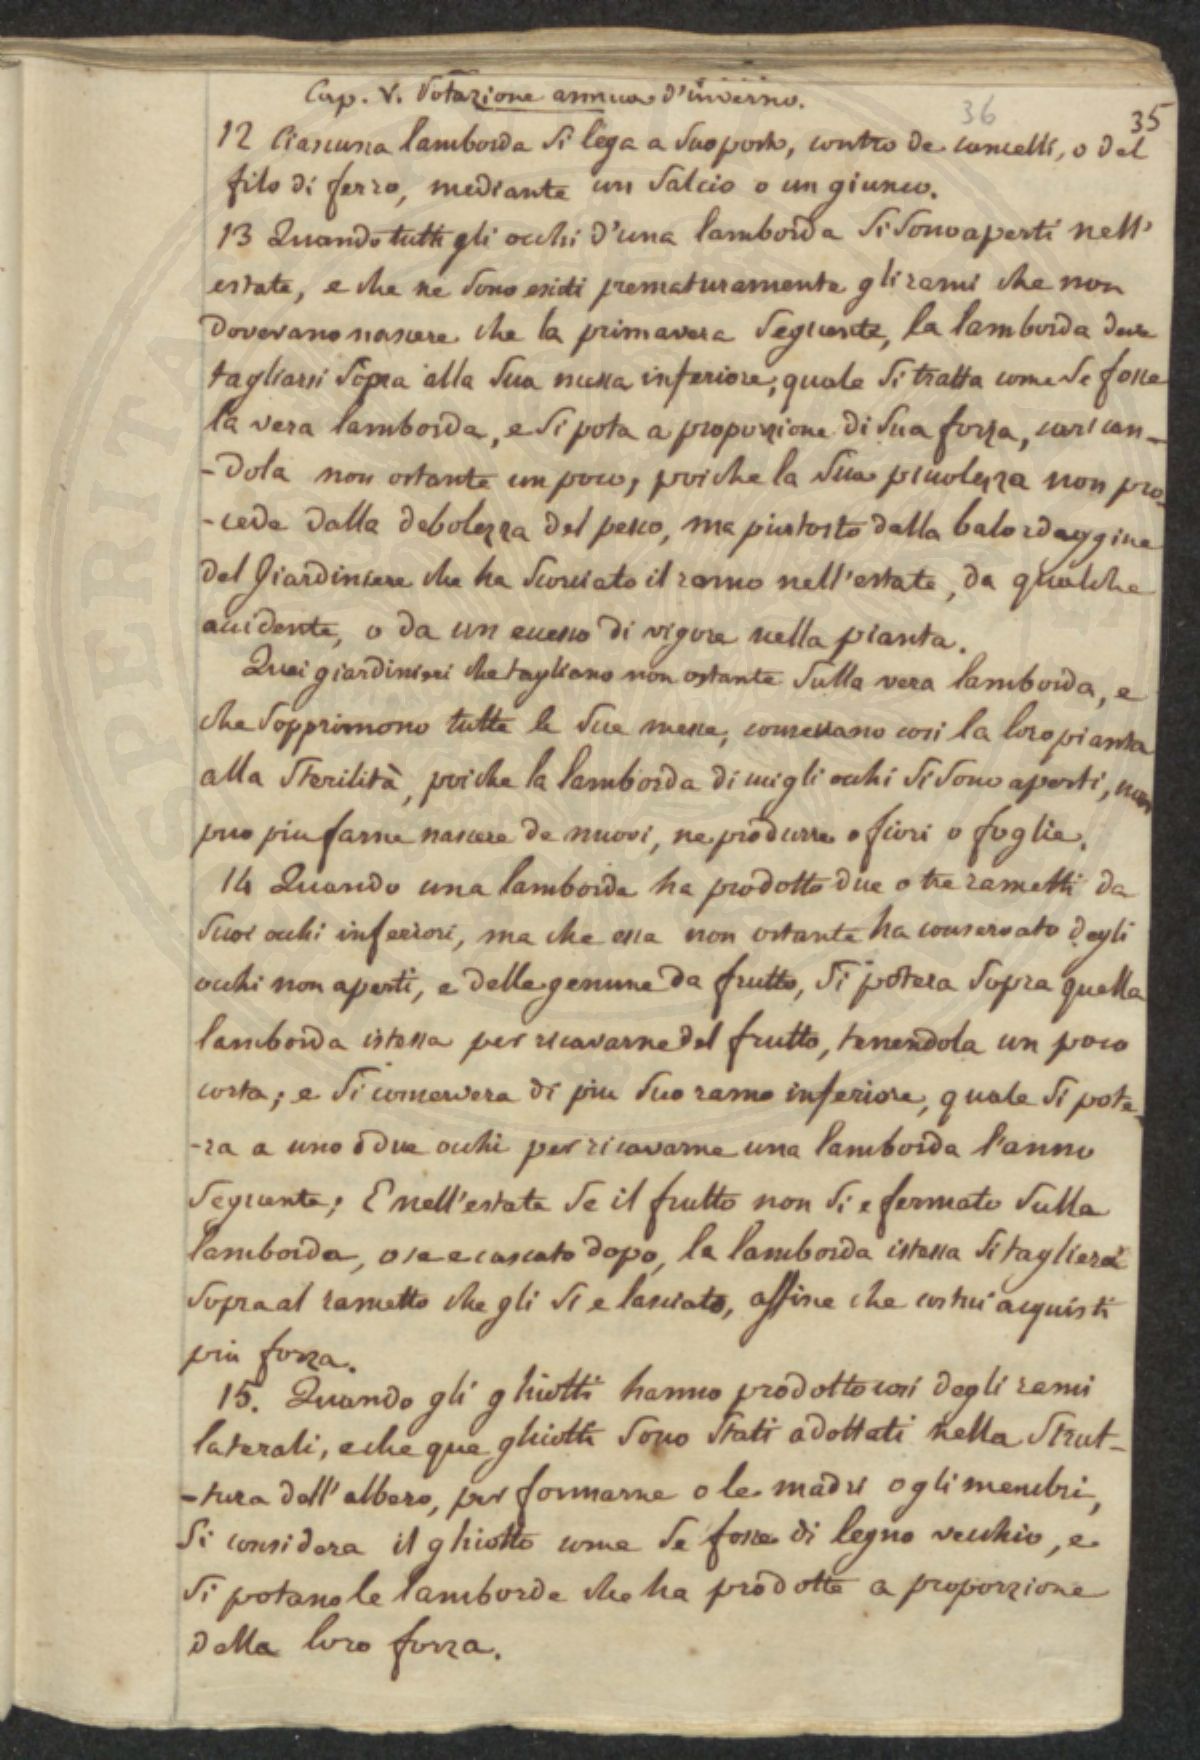 Cap. V. Potazione annua d'inverno.
36
35
12 Ciascuna lamborda si lega a suo posto, contro de cancelli, o del
filo di ferro, mediante un salcio o un giunco.
13 Quando tutti gli occhi d'una lamborda si sono aperti nell'
estate, e che ne sono esciti prematuramente gli rami che non
dovevano nascere che la primavera seguente, la lamborda deve
tagliarsi sopra alla sua messa inferiore, quale si tratta come se fosse
la vera lamborda, e si pota a proporzione di sua forza, carican-
-dola non ostante un poco, poiche la sua picolezza non pro-
-cede dalla debolezza del pesco, ma piutosto dalla balordaggine
del Giardiniere che ha scorciato il ramo nell'estate, da qualche
accidente, o da un eccesso di vigore nella pianta.
Quei giardinieri che tagliano non ostante sulla vera lamborda, e
che sopprimono tutte le sue messe, così la loro pianta
alla sterilità, poiche la lamborda di cui gli occhi si sono aperti, non
puo piu farne nascere de nuovi, ne produrre o fiori o foglie.
14 Quando una lamborda ha prodotto due o tre rametti da
suoi occhi inferiori, ma che essa non ostante ha conservato degli
occhi non aperti, e delle gemme da frutto, si potera sopra quella
lamborda istessa per ricavarne del frutto, tenendola un poco
corta; e si conservera di piu suo ramo inferiore, quale si pote-
-ra a uno o due occhi per ricavarne una lamborda l'anno
seguente; E nell'estate se il frutto non si e fermato sulla
lamborda, o se e cascato dopo, la lamborda istessa si taglierà
sopra al rametto che gli si e lasciato, affine che costui acquisti
piu forza.
15. Quando gli ghiotti hanno prodotto cosi degli rami
laterali, e che que ghiotti sono stati adottati nella strut-
-tura dell'albero, per formarne o le madri o gli membri,
si considera il ghiotto come se fosse di legno vecchio, e
si potano le lamborde che ha prodotte a proporzione
della loro forza.